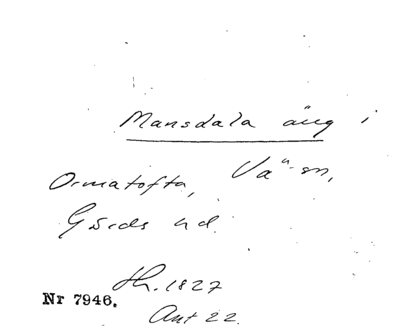 Mansdala äng i
Ormatofta, Vä-sn,
Gärds hd.
Hh. 1827
Nr 7946.
Ant 22.